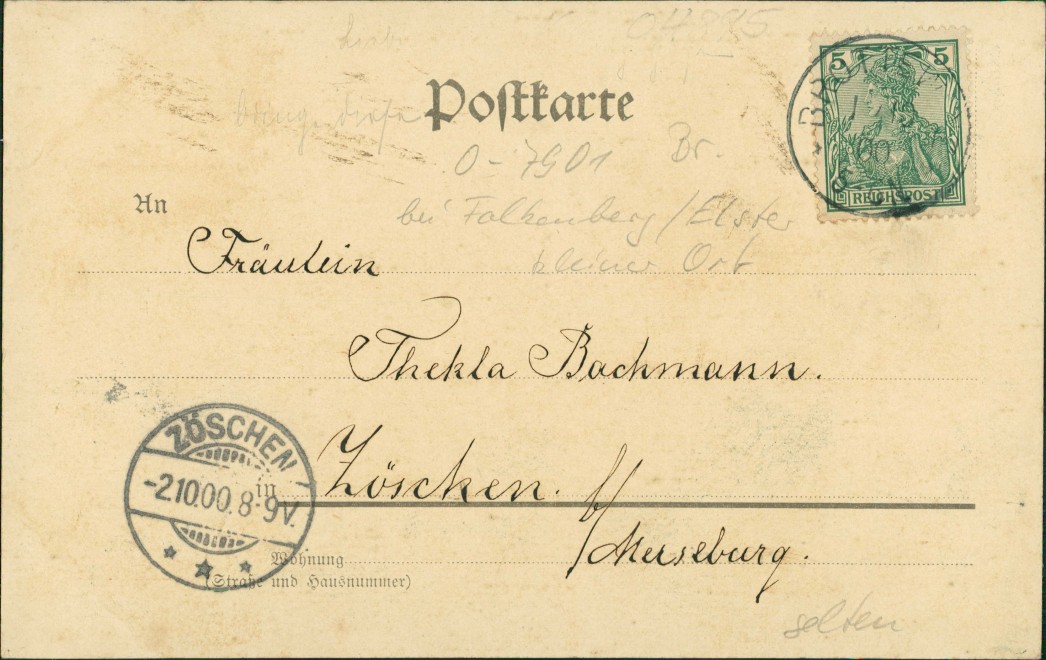 Postkarte
5 5
REICHSPOST
O-7901 Br.
bei Falkenberg/Elster
kleiner Ort
An
Fräulein
Thekla Bachmann.
ZÖSCHEN
-2.10.00.8-9V.
in Zöschen. b/
Merseburg.
Wohnung
(Straße und Hausnummer)
selten